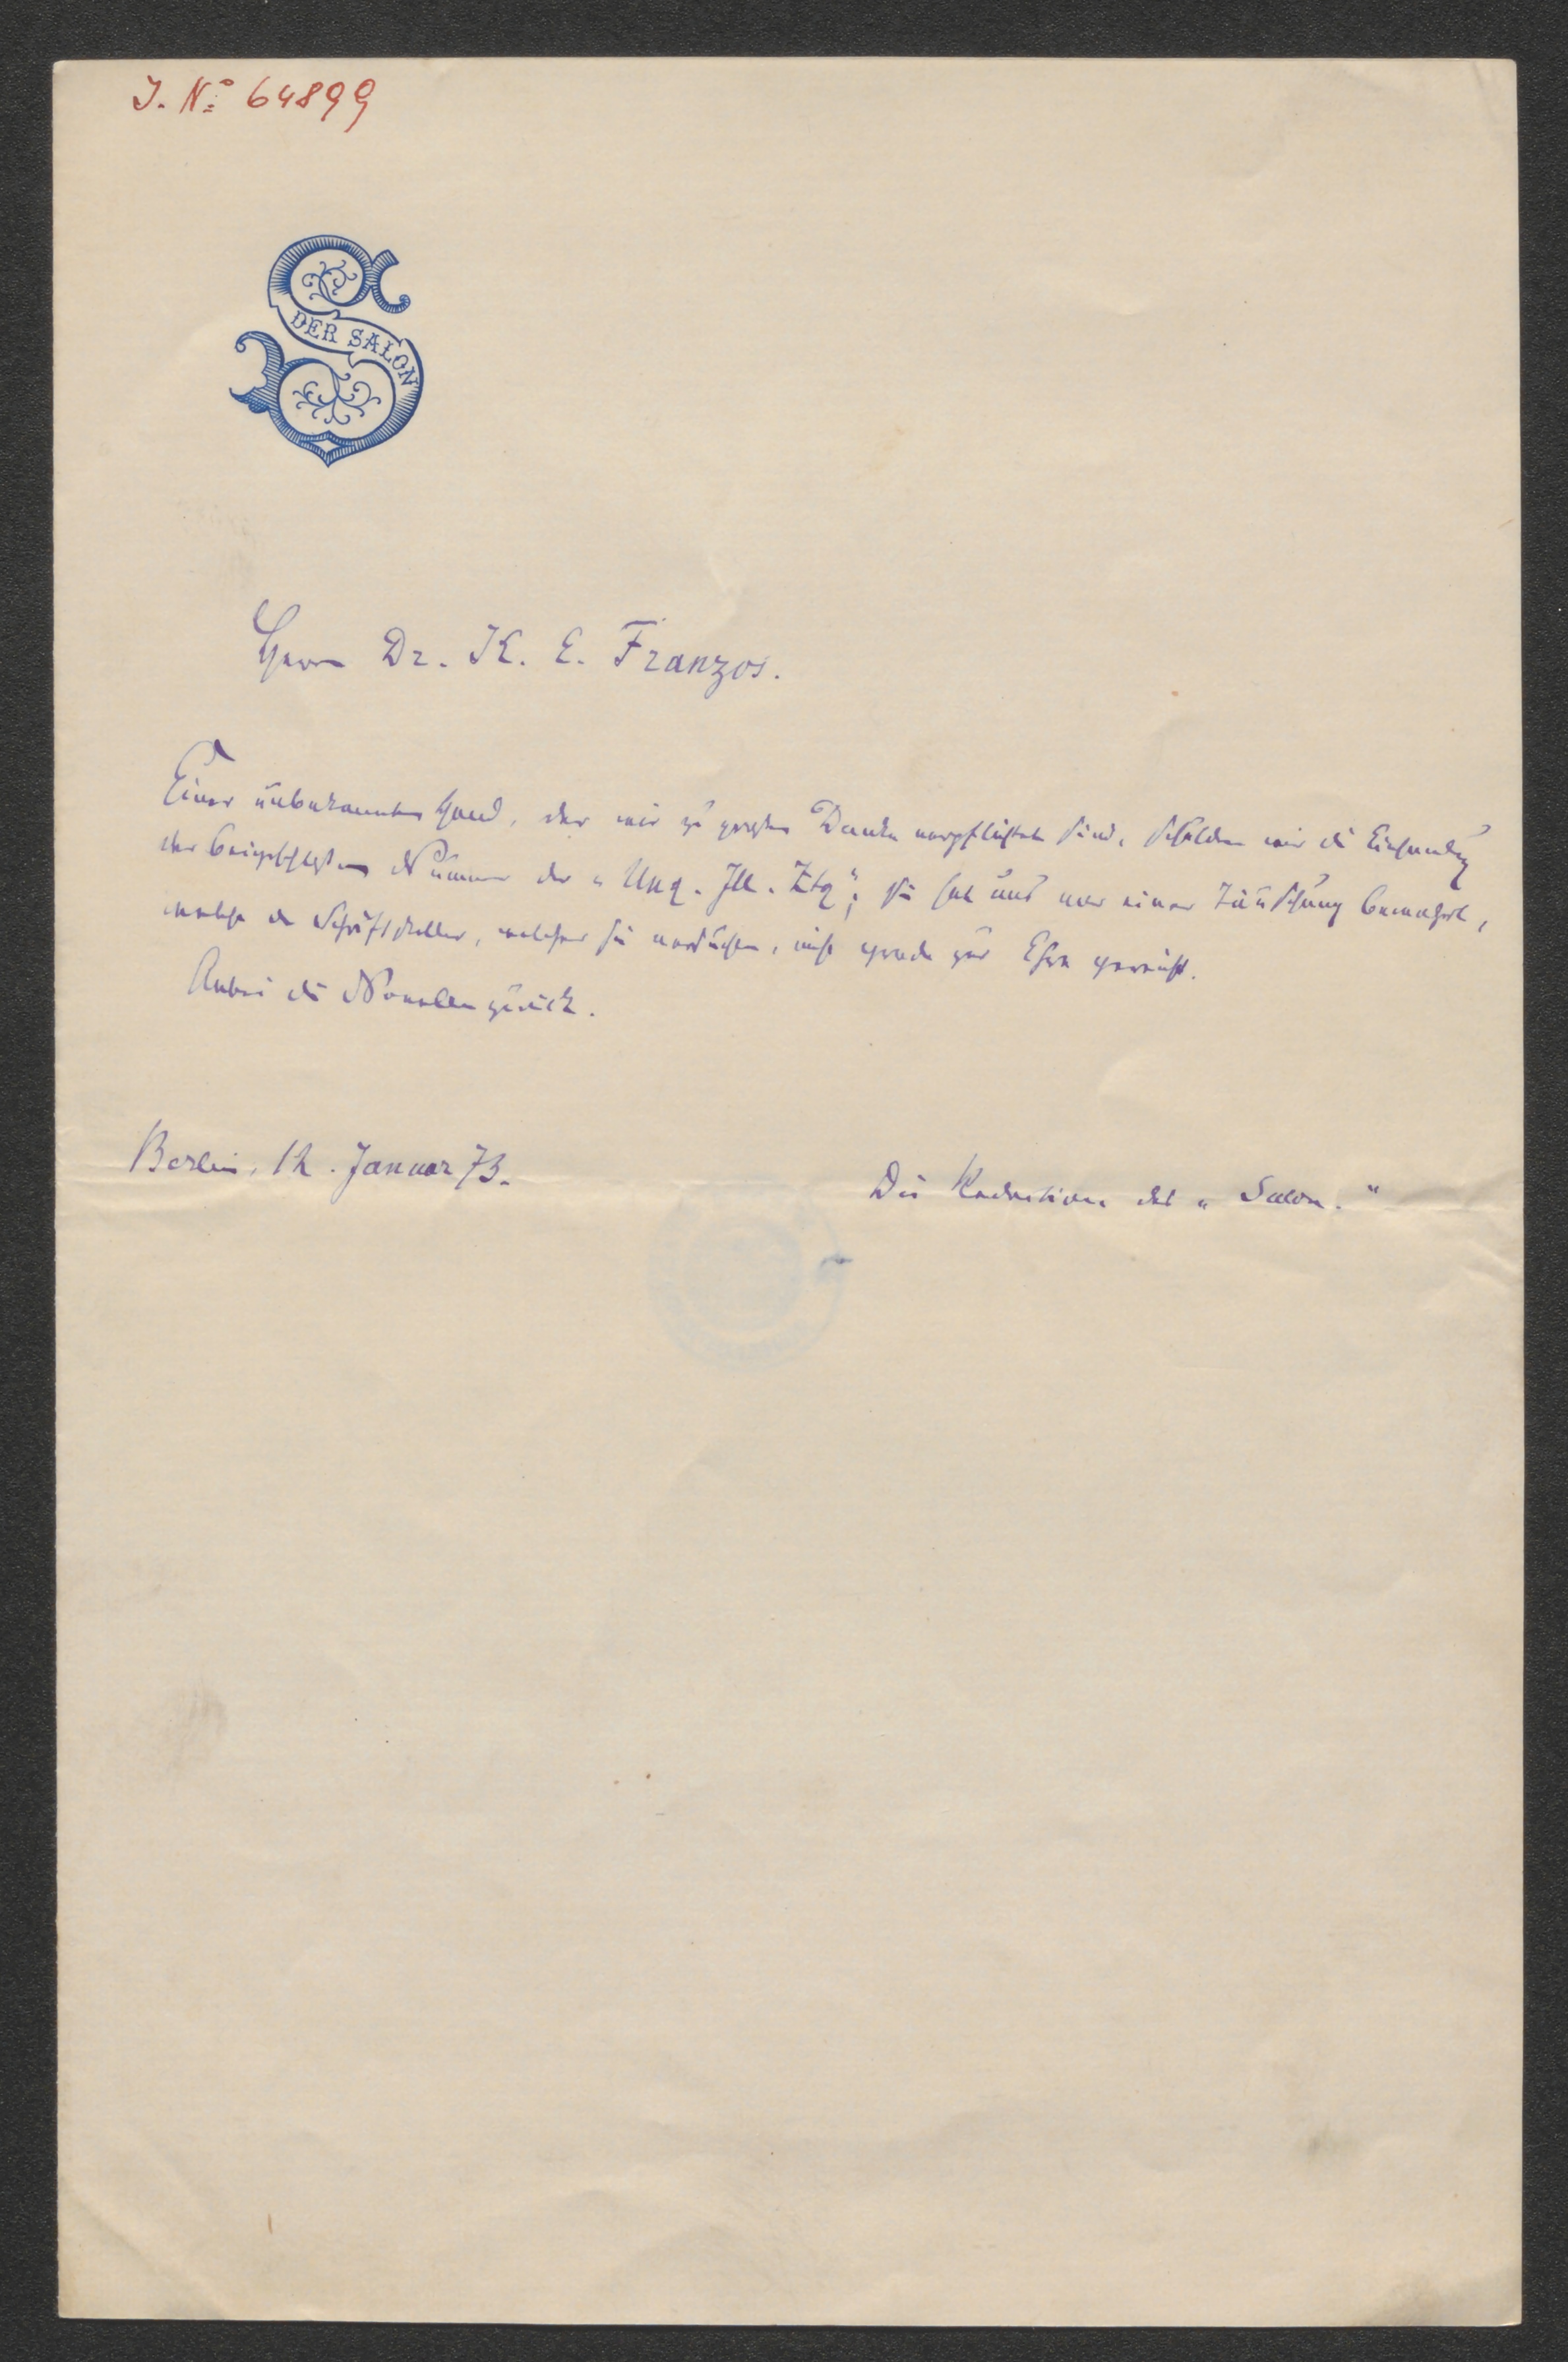 J. No 64899
DER SALON
Herrn Dr. K. E. Franzos.
Einer unbekannten Hand, der wir zu großem Danke verpflichtet sind, schulden wir die Einsendung
der beigeschlossenen Nummer der „Ung. Ill. Ztg“; sie hat uns vor einer Täuschung bewahrt,
welche dem Schriftsteller, welcher sie versuchte, nicht grade zur Ehre gereicht.
Anbei die Novellen zurück.
Berlin, 12. Januar 73.
Die Redaktion des „Salon.“